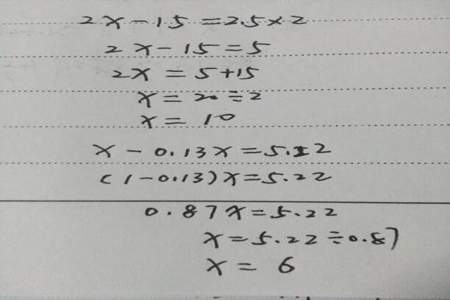 2x-15=2.5×2
2x-15=5
2x=5+15
x=20÷2
x=10
x-0.13x=5.22
(1-0.13)x=5.22
0.87x=5.22
x=5.22÷0.87
x=6